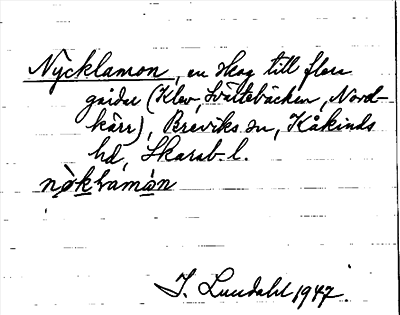 Nycklamon, en skog till flera
gårdar (Klev, Svältebäcken, Nord-
kärr), Breviks sn, Kåkinds
hd, Skarab. l.
nòklamȯn
I. Lundahl 1947.